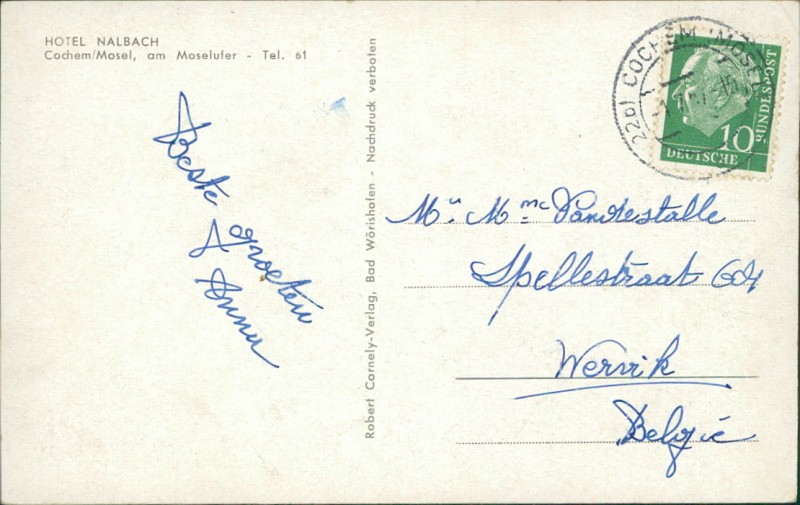 HOTEL NALBACH
Cochem/Mosel, am Moselufer - Tel. 61
Beste
groeten
Anna
Robert Cornely-Verlag, Bad Wörishofen - Nachdruck verboten
(22b) COCHEM (MOSEL)
10
DEUTSCHE
BUNDESPOST
Mr. Mme Vandestalle
Spellestraat
Wervik
België